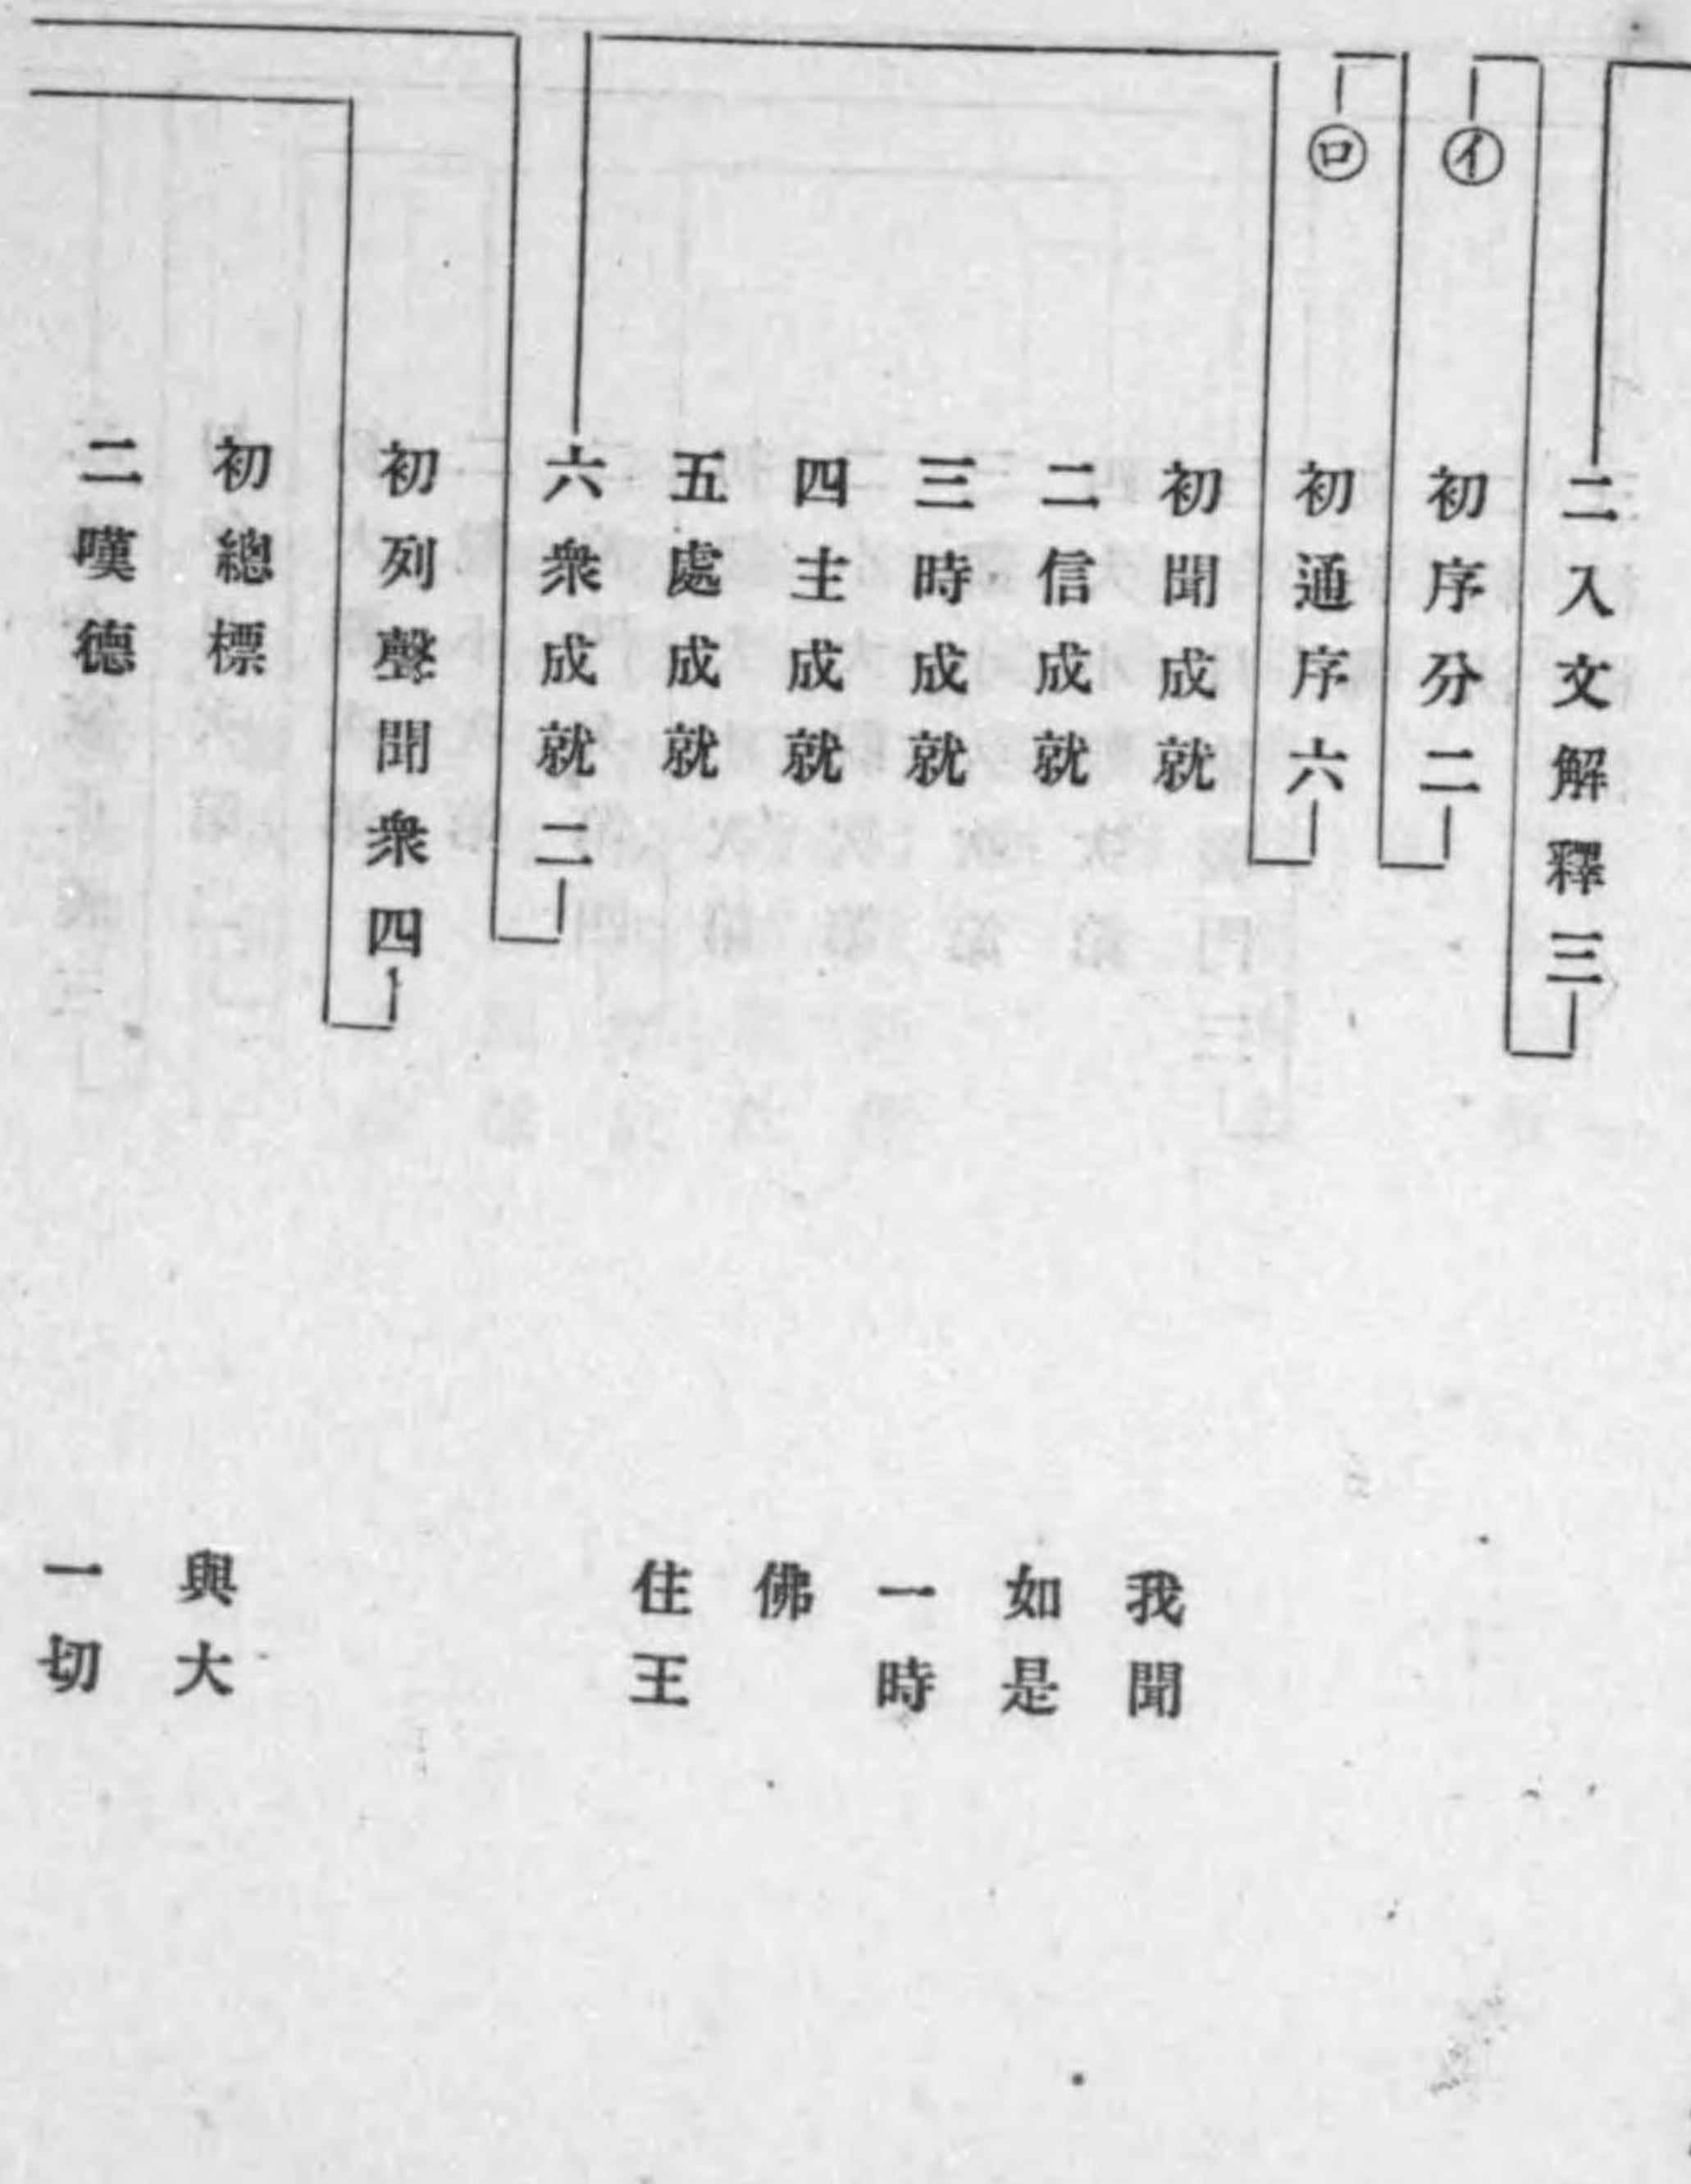 二入文解釋三
㋑
初序分二
㋺
初通序六
初聞成就
我聞
二信成就
如是
三時成就
一時
四主成就
佛
五處成就
住王
六衆成就二
初列聲聞衆四
初總標
與大
二嘆德
一切